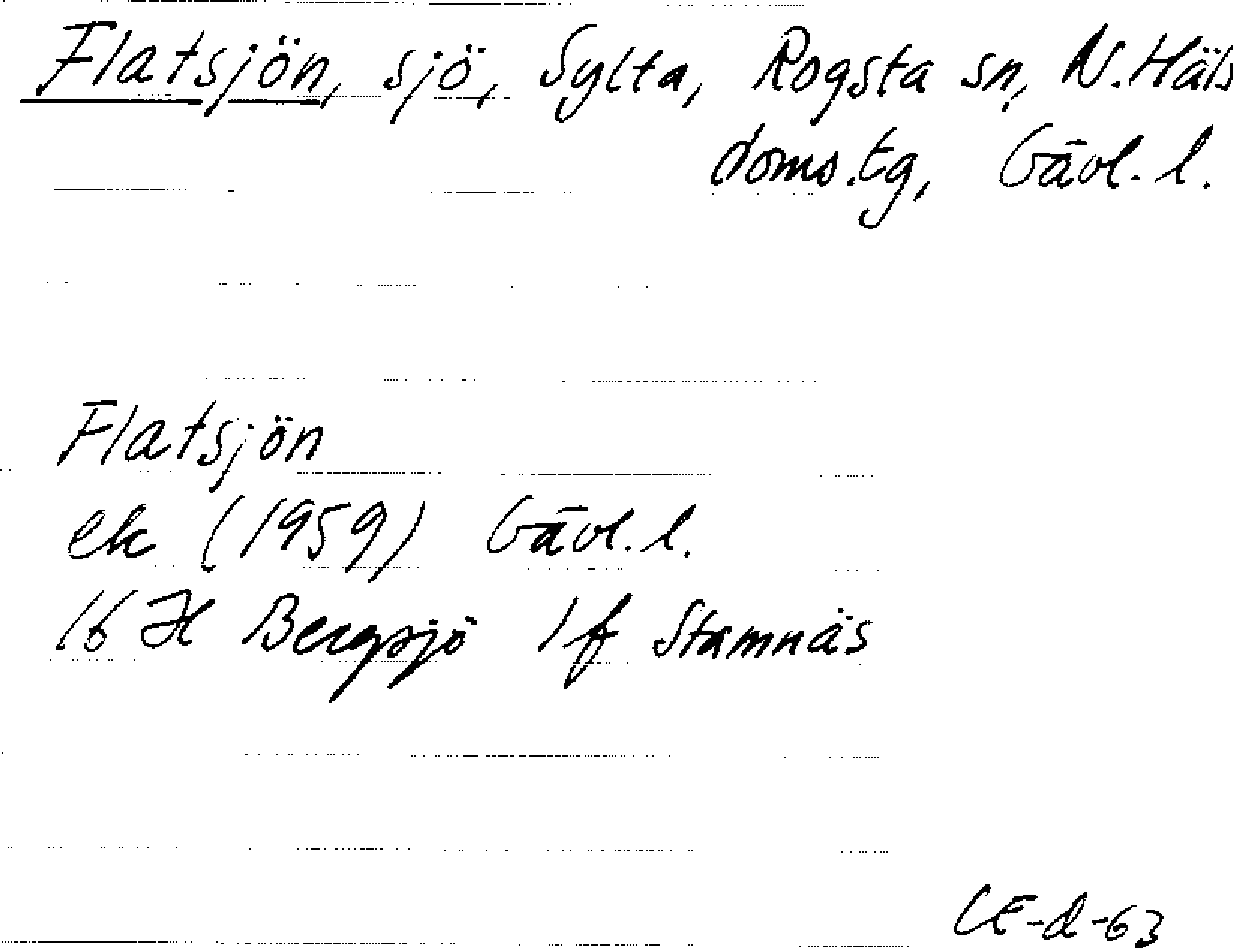 Flatsjön, sjö, Sylta, Rogsta sn, N. Häls
doms.tg, Gävl. l.
Flatsjön
ek (1959) Gävl. l.
16 H Bergsjö 1f Stamnäs
CE-d-63